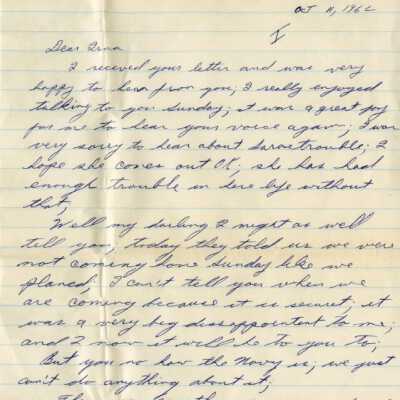 Oct 11, 1962
I
Dear Irma
I received your letter and was very
happy to hear from you; I really enjoyed
talking to you Sunday; it was a great joy
for me to hear your voice again; I was
very sorry to hear about Saras trouble; I
hope she comes out O.K; she has had
enough trouble in here life without
that;
Well my darling I might as well
tell you; today they told us we were
not coming home Sunday like we
planed. I can't tell you when we
are coming because it is secret; it
was a very big disappointent to me;
and I now it will be to you to;
But you no how the Navy is; we just
can't do anything about it;